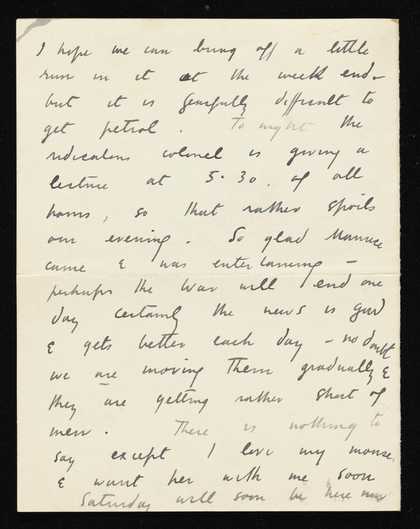 I hope we can bring off a little
run in it at the week end -
but it is fearfully difficult to
get petrol. To night the
ridiculous colonel is giving a
lecture at 5.30. of all
hours, so that rather spoils
our evening. So glad Maurice
came & was entertaining -
perhaps the war will end one
day certainly the news is good
& gets better each day - no doubt
we are moving them gradually &
they are getting rather short of
men. There is nothing to
say except I love my mouse,
& want her with me soon
Saturday will soon be here now